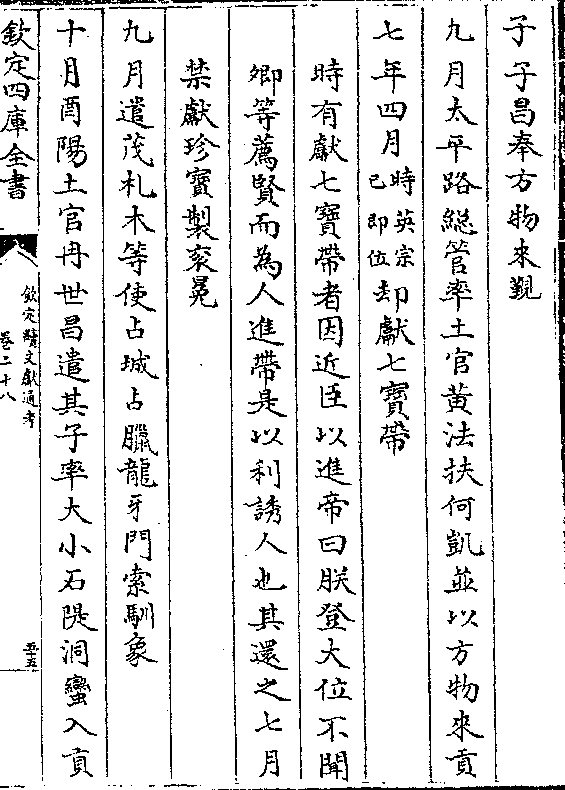 子子昌奉方物来覲
九月太平路緫管率土官黄法扶何凱並以方物來貢
七年四月時英宗已即位却獻七寳帶
時有獻七寳帶者因近臣以進帝曰朕登大位不聞
卿等薦賢而為人進帶是以利誘人也其還之七月
禁獻珍寳製衮冕
九月遣茂札木等使占城占臘龍牙門索馴象
十月酉陽土官冉世昌遣其子率大小石隄洞蠻入貢
欽定四庫全書
欽定續文獻通考
卷二十八
五十五